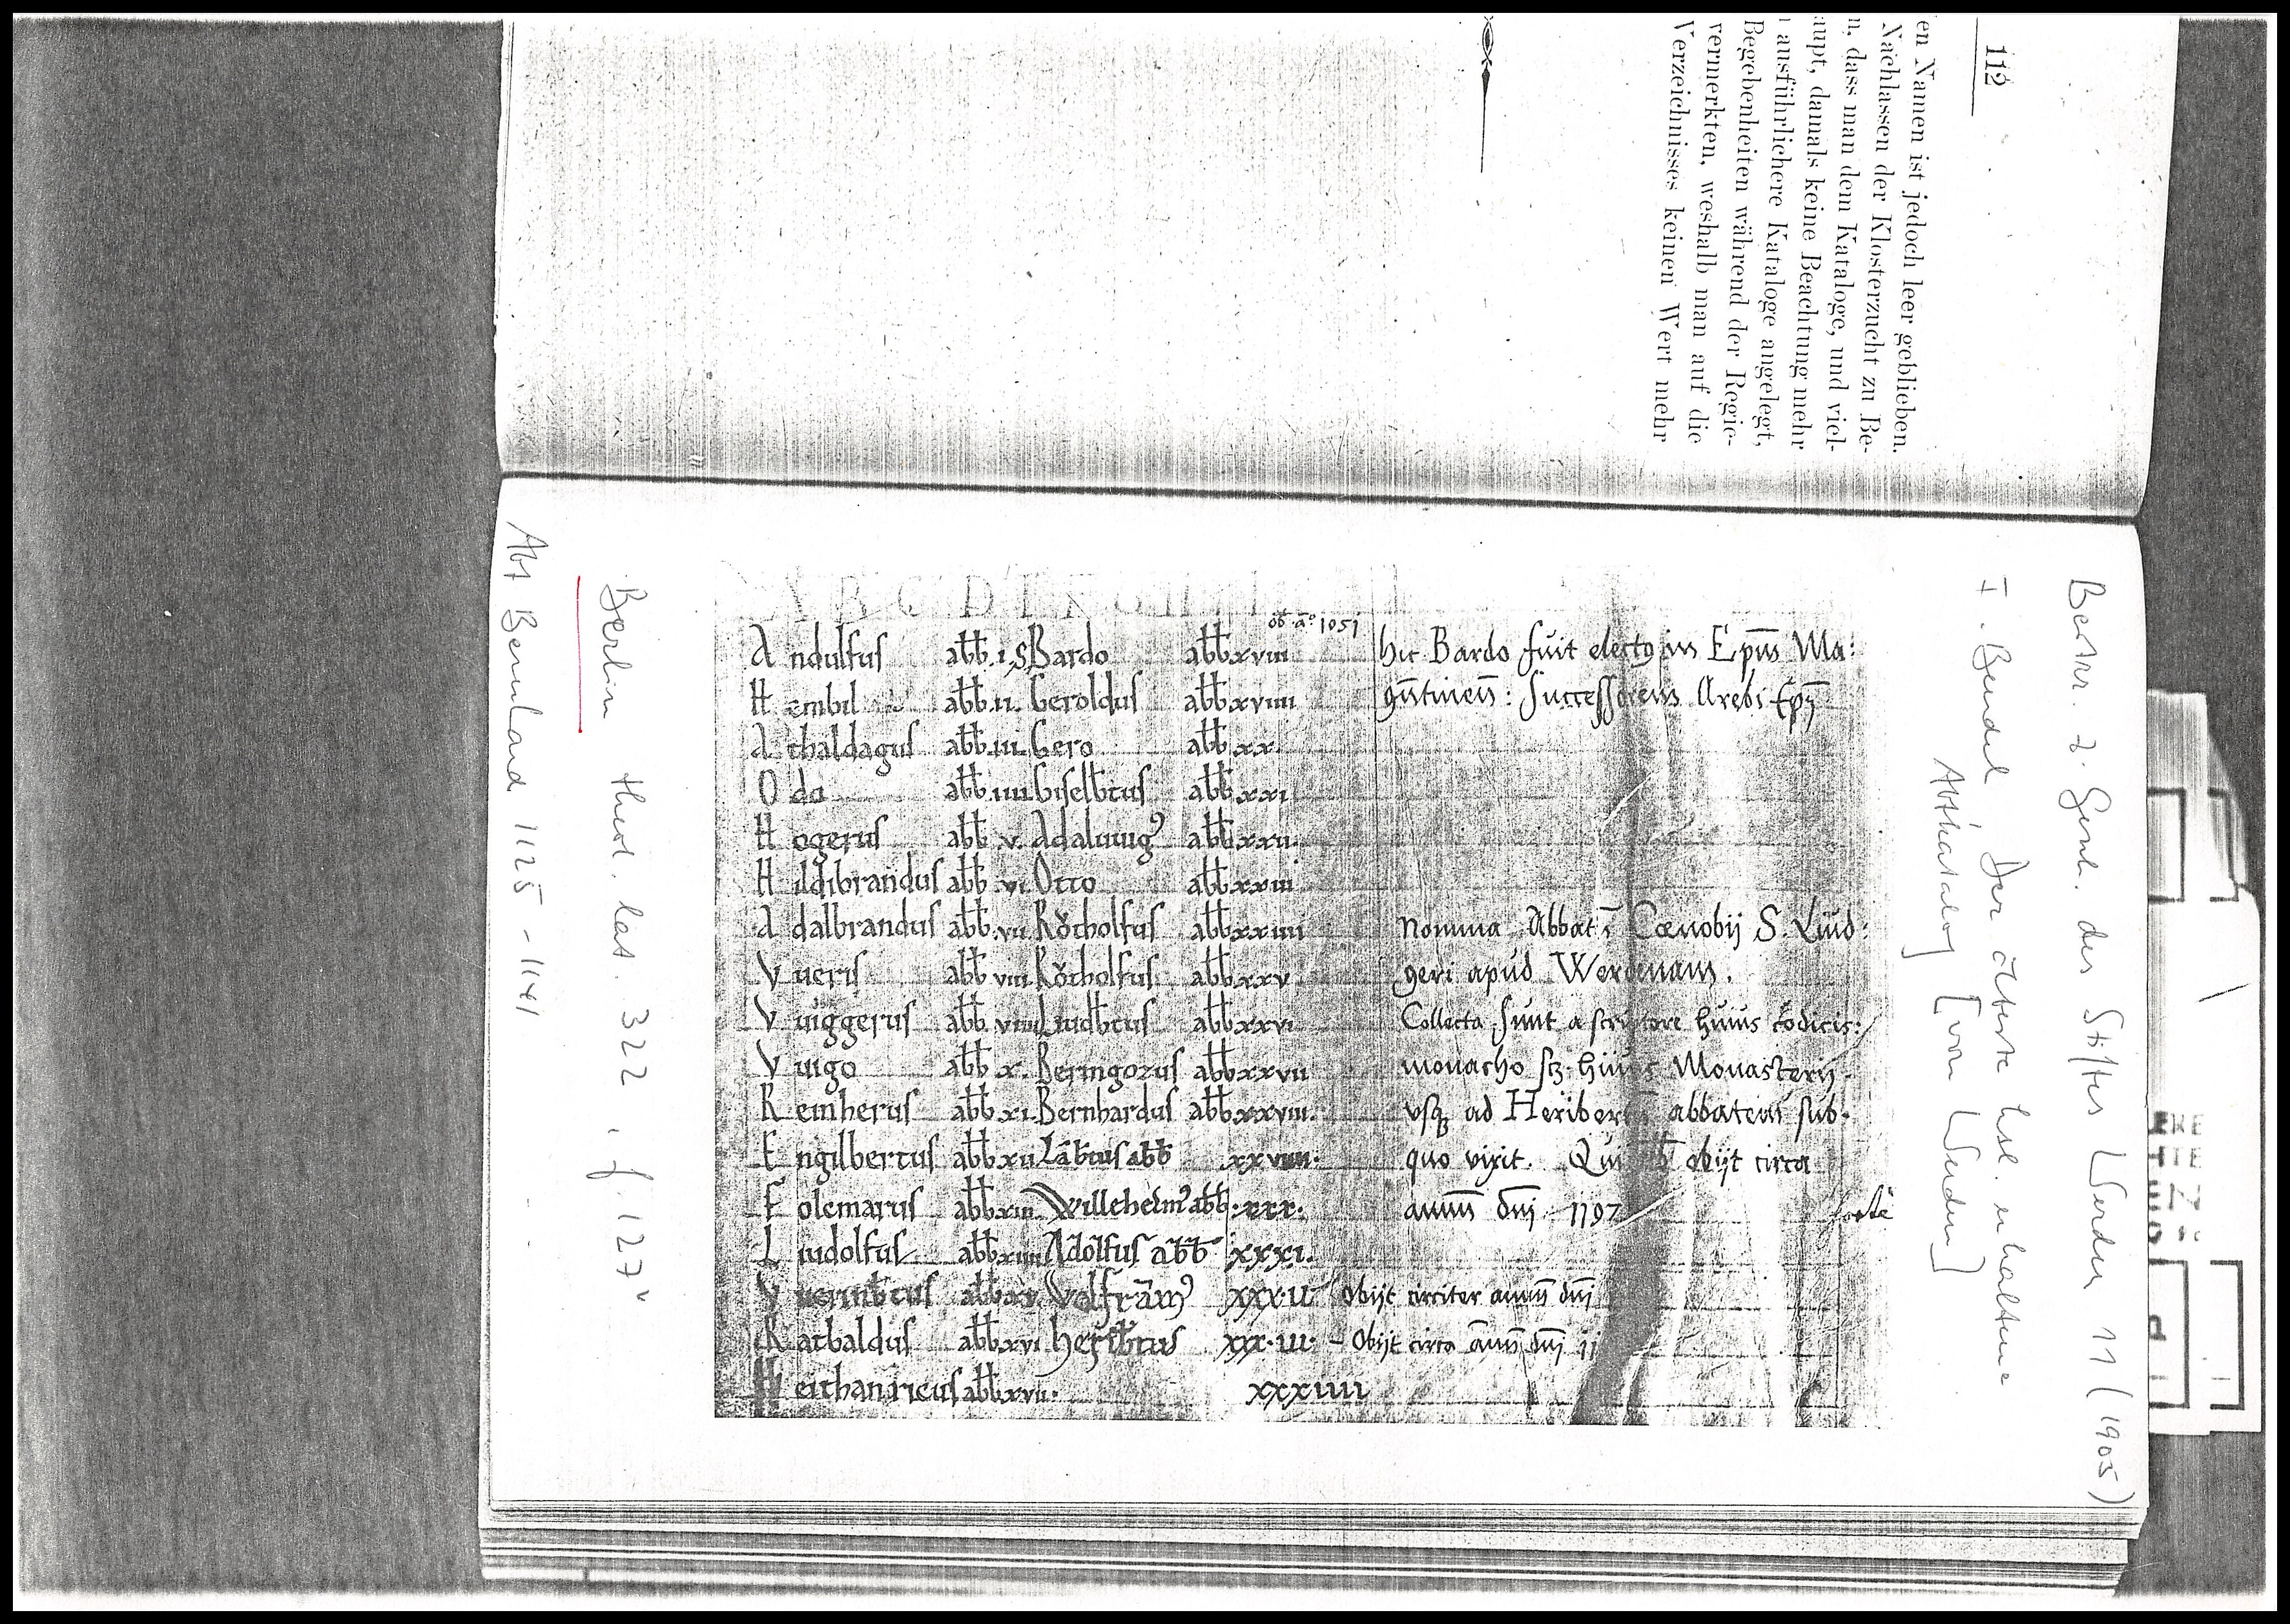 112
en Namen ist jedoch leer geblieben.
Nachlassen der Klosterzucht zu Be-
n, dass man dem Kataloge, und viel-
aupt, damals keine Beachtung mehr
ausführlichere Kataloge angelegt,
Begebenheiten während der Regie-
vermerkten, weshalb man auf die
Verzeichnisses keinen Wert mehr
Beitr. z. Gesch. des Stiftes Werden 11 (1905)
I. Bendel, Der älteste hsl. erhaltene
Abtkatalog [von Werden]
A B C D E F G H I
ob. aº 1051
Andulfus abb. i. S. Bardo abb xviii hic Bardo fuit electꝯ in Epm̄ Ma:
Hembil abb. ii. Geroldus abb xviiii gūtineñ: Successorem Arebi Ep̄j
Athaldagus abb. iii. Gero abb xx.
Odo abb. iiii. Giselbtus abb xxi
Hogerus abb v. Adaluuigꝯ abb xxii.
Hildibrandus abb vi. Otto abb xxiii
Adalbrandus abb. vii. Rötholfus abb xxiiii Nomina Abbat Cœnobij S. Lud:
Vueris abb viii. Rötholfus abb xxv geri apud Werdenam.
Vuiggerus abb viiii. Liudbtus abb xxvi Collecta sunt a scriptore huius codicis:
Vuigo abb x. Beringozus abb xxvii monacho sꝫ. huius Monasterij.
Reinherus abb xi. Bernhardus abb xxviii. vsqꝫ ad Heribertū abbatem sub.
Engilbertus abb xii Lābtus abb xxviiii. quo vixit. Qui obijt circa
Folcmarus abb xiii Willehelmꝯ abb. xxx. annū dn̄i 1197 forte
Liudolfus abb xiiii Adolfus abb xxxi.
Vuerinbtus abb xv. Wolframꝯ xxx.ii. Obijt circiter annū dn̄i
Ratbaldus abb xvi Heribtus xxx.iii. - Obijt circa annū dn̄i 11
Heithanricus abb xvii. xxxiiii
Berlin theol. lat. 322, f. 127ᵛ
Abt Bernhard 1125 - 1141